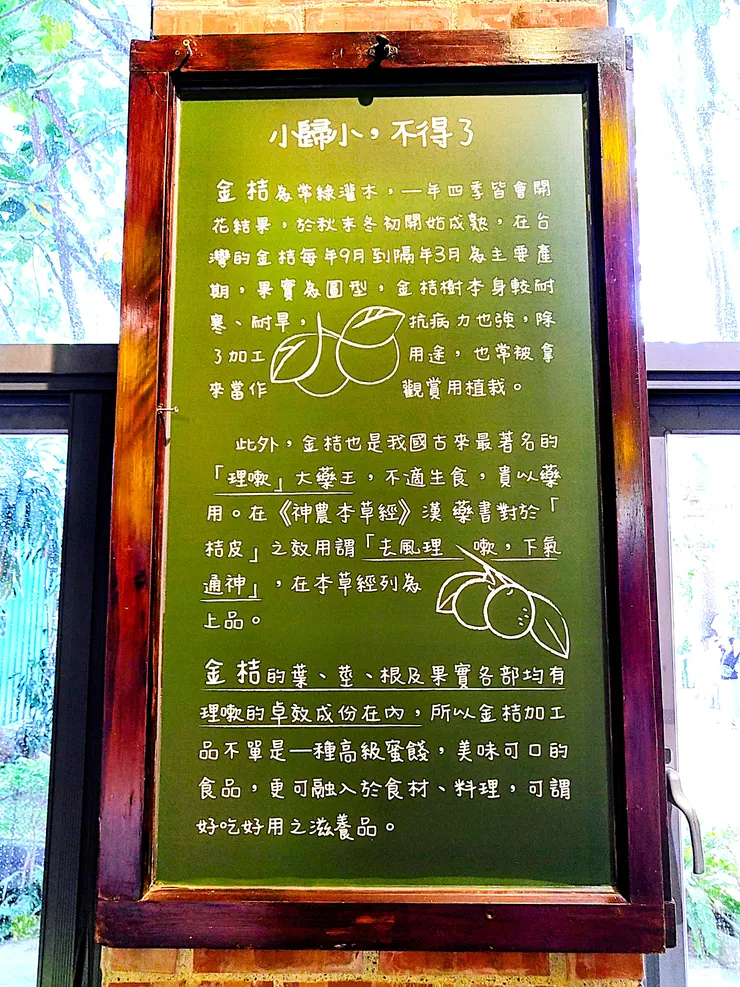 小歸小，不得了
金桔為常綠灌木，一年四季皆會開
花結果，於秋末冬初開始成熟，在台
灣的金桔每年9月到隔年3月為主要產
期，果實為圓型，金桔樹本身較耐
寒、耐旱，抗病力也強，除
了加工用途，也常被拿
來當作觀賞用植栽。
此外，金桔也是我國古來最著名的
「理嗽」大藥王，不適生食，貴以藥
用。在《神農本草經》漢藥書對於「
桔皮」之效用謂「去風理 嗽，下氣
通神」，在本草經列為
上品。
金桔的葉、莖、根及果實各部均有
理嗽的卓效成份在內，所以金桔加工
品不單是一種高級蜜餞，美味可口的
食品，更可融入於食材、料理，可謂
好吃好用之滋養品。